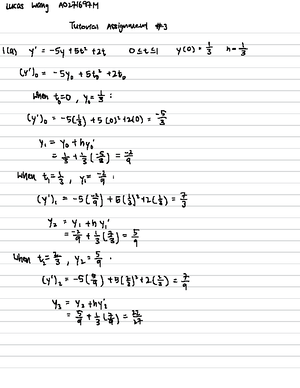 Lucas Wong A0271697M
Tutorial Assignment #3
1(a) y' = -5y + 5t² + 2t 0 ≤ t ≤ 1 y(0) = 1/3 h = 1/3
(y')₀ = -5y₀ + 5t₀² + 2t₀
When t₀=0, y₀ = 1/3 :
(y')₀ = -5(1/3) + 5(0)² + 2(0) = -5/3
y₁ = y₀ + hy₀'
= 1/3 + 1/3(-5/3) = -2/9
When t₁ = 1/3, y₁ = -2/9 :
(y')₁ = -5(-2/9) + 5(1/3)² + 2(1/3) = 7/3
y₂ = y₁ + hy₁'
= -2/9 + 1/3(7/3) = 5/9
When t₂ = 2/3, y₂ = 5/9 .
(y')₂ = -5(5/9) + 5(2/3)² + 2(2/3) = 7/9
y₃ = y₂ + hy₂'
= 5/9 + 1/3(7/9) = 22/27